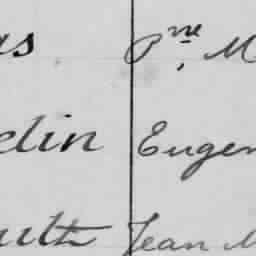 as Pre M
elin Eugen
ult Jean M